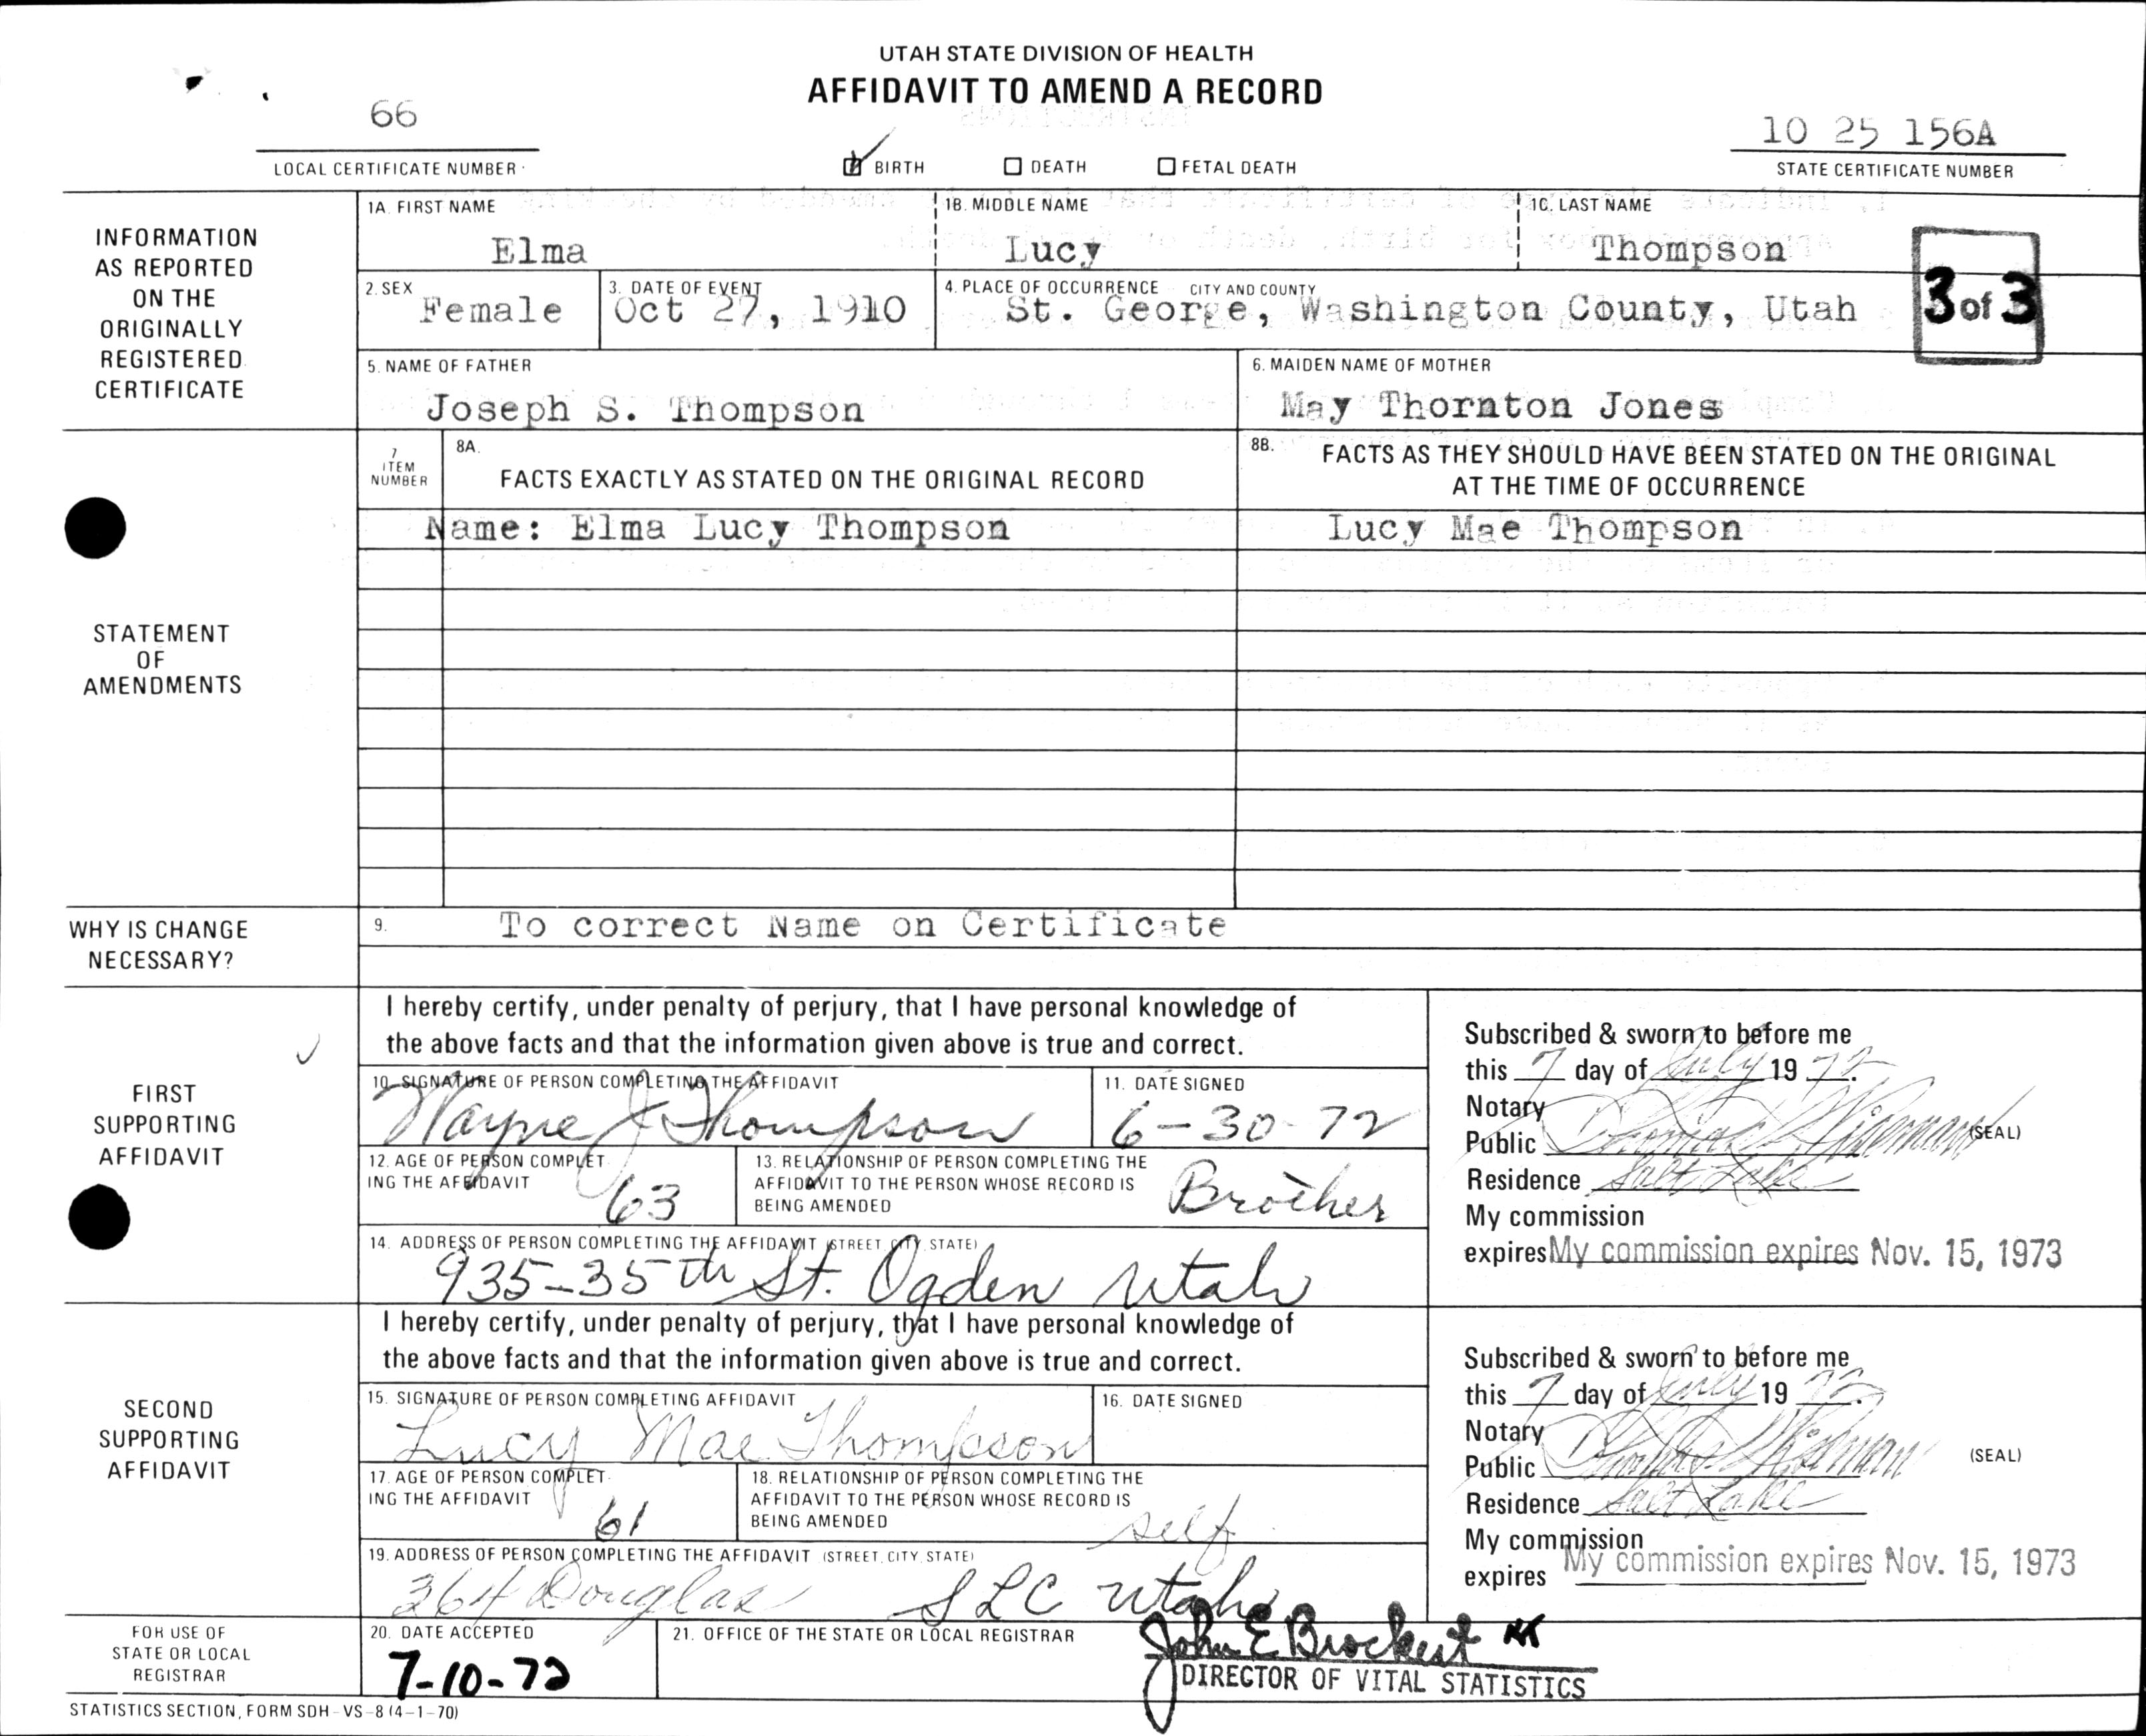 UTAH STATE DIVISION OF HEALTH
AFFIDAVIT TO AMEND A RECORD
66
LOCAL CERTIFICATE NUMBER
BIRTH DEATH FETAL DEATH
10 25 156A
STATE CERTIFICATE NUMBER
INFORMATION AS REPORTED ON THE ORIGINALLY REGISTERED CERTIFICATE
1A. FIRST NAME 1B. MIDDLE NAME 1C. LAST NAME
Elma Lucy Thompson
3 of 3
2. SEX 3. DATE OF EVENT 4. PLACE OF OCCURRENCE CITY AND COUNTY
Female Oct 27, 1910 St. George, Washington County, Utah
5. NAME OF FATHER 6. MAIDEN NAME OF MOTHER
Joseph S. Thompson May Thornton Jones
STATEMENT OF AMENDMENTS
7 ITEM NUMBER
8A. FACTS EXACTLY AS STATED ON THE ORIGINAL RECORD
8B. FACTS AS THEY SHOULD HAVE BEEN STATED ON THE ORIGINAL
AT THE TIME OF OCCURRENCE
Name: Elma Lucy Thompson Lucy Mae Thompson
WHY IS CHANGE NECESSARY?
9. To correct Name on Certificate
FIRST SUPPORTING AFFIDAVIT
I hereby certify, under penalty of perjury, that I have personal knowledge of
the above facts and that the information given above is true and correct.
10. SIGNATURE OF PERSON COMPLETING THE AFFIDAVIT 11. DATE SIGNED
Wayne J Thompson 6-30-72
12. AGE OF PERSON COMPLET
ING THE AFFIDAVIT
63
13. RELATIONSHIP OF PERSON COMPLETING THE
AFFIDAVIT TO THE PERSON WHOSE RECORD IS
BEING AMENDED
Brother
14. ADDRESS OF PERSON COMPLETING THE AFFIDAVIT (STREET, CITY, STATE)
935-35th St. Ogden Utah
Subscribed & sworn to before me
this 7 day of July 19 72.
Notary
Public (SEAL)
Residence Salt Lake
My commission
expires My commission expires Nov. 15, 1973
SECOND SUPPORTING AFFIDAVIT
I hereby certify, under penalty of perjury, that I have personal knowledge of
the above facts and that the information given above is true and correct.
15. SIGNATURE OF PERSON COMPLETING AFFIDAVIT 16. DATE SIGNED
Lucy Mae Thompson
17. AGE OF PERSON COMPLET
ING THE AFFIDAVIT
61
18. RELATIONSHIP OF PERSON COMPLETING THE
AFFIDAVIT TO THE PERSON WHOSE RECORD IS
BEING AMENDED
self
19. ADDRESS OF PERSON COMPLETING THE AFFIDAVIT (STREET, CITY, STATE)
364 Douglas SLC Utah
Subscribed & sworn to before me
this 7 day of July 19 72.
Notary
Public (SEAL)
Residence Salt Lake
My commission
expires My commission expires Nov. 15, 1973
FOR USE OF STATE OR LOCAL REGISTRAR
20. DATE ACCEPTED 21. OFFICE OF THE STATE OR LOCAL REGISTRAR
7-10-72 John E Brockert
DIRECTOR OF VITAL STATISTICS
STATISTICS SECTION, FORM SDH-VS-8 (4-1-70)